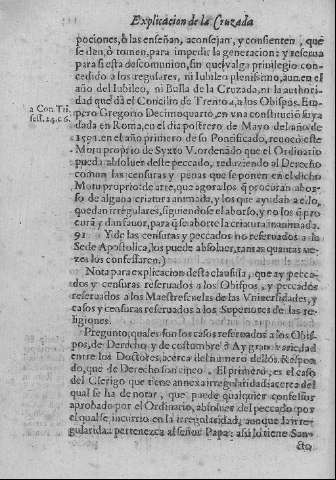 Explicacion de la Cruzada
pociones, ò las enseñan, aconsejan, y consienten, que
se den, ò tomen, para impedir la generacion: y reserua
para si esta descomunion, sin que valga priuilegio con-
cedido a los regulares, ni Iubileo plenissimo, aun en el
año del Iubileo, ni Bulla de la Cruzada, ni la authori-
a Con. Tri.
sess. 24. c. 6.
dad que dà el Concilio de Trento a, a los Obispos. Em-
pero Gregorio Decimoquarto, en vna constituciõ suya
dada en Roma, en el dia postrero de Mayo del año de
1591. en el año primero de su Pontificado, reuocò este
Motu proprio de Syxto V. ordenãdo que el Ordinario
pueda absoluer deste peccado, reduziendo al Derecho
comun las censuras y penas que se ponen en el dicho
Motu proprio: de arte, que agora los q procurãn abor-
so de alguna criatura animada, y los que ayudan a ello,
quedan irregulares, siguiendose el aborso, y no los q pro
curã y dan fauor, para q se aborte la criatura inanimada.
91 Y de las censuras y peccados no reseruados a la
Sede Apostolica, los puede absoluer, tantas quantas ve-
zes los confessaren.)
Nota para explicacion desta clausula, que ay pecca-
dos y censuras reseruados a los Obispos, y peccados
reseruados a los Maestrescuelas de las Vniuersidades, y
casos y censuras reseruados a los Superiores de las re-
ligiones.
Pregunto, quales son los casos reseruados a los Obis-
pos, de Derecho y de costumbre? Ay gran variedad
entre los Doctores, acerca del numero dellos. Respon-
do, que de Derecho son cinco. El primero, es el caso
del Clerigo que tiene annexa irregularidad: acerca del
qual se ha de notar, que puede qualquier confessor
aprobado por el Ordinario, absoluer del peccado por
el qual se incurrio en la irregularidad, aunque la irre-
gularidad pertenezca al señor Papa: assi lo tiene San-
cto